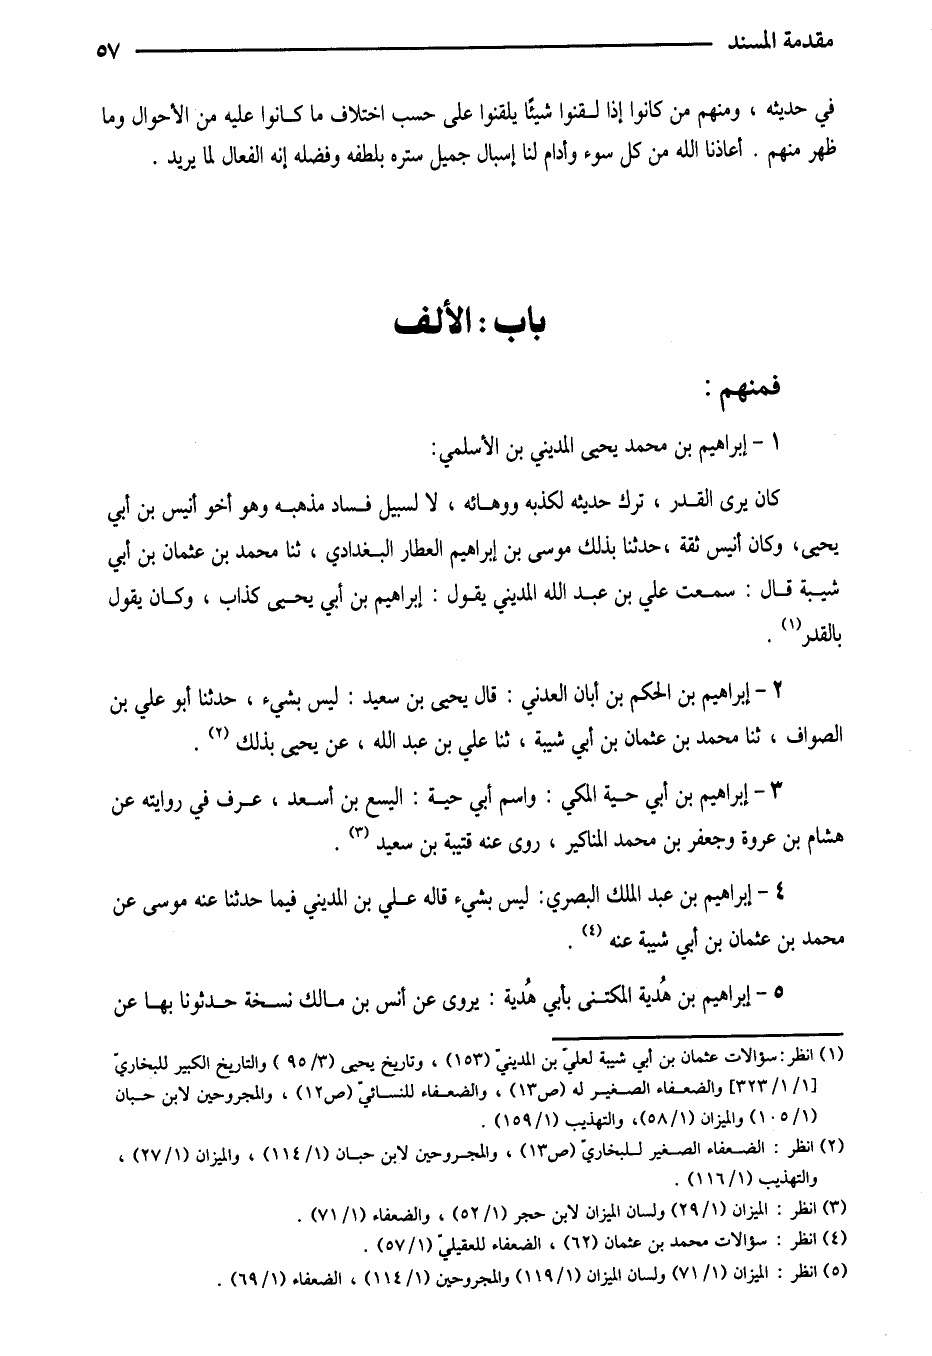 مقدمة المسند ٥٧
في حديثه ، ومنهم من كانوا إذا لقنوا شيئًا يلقنوا على حسب اختلاف ما كانوا عليه من الأحوال وما
ظهر منهم . أعاذنا الله من كل سوء وأدام لنا إسبال جميل ستره بلطفه وفضله إنه الفعال لما يريد .
باب : الألف
فمنهم :
١ - إبراهيم بن محمد يحيى المديني بن الأسلمي:
كان يرى القدر ، ترك حديثه لكذبه ووهائه ، لا لسبيل فساد مذهبه وهو أخو أنيس بن أبي
يحيى، وكان أنيس ثقة ،حدثنا بذلك موسى بن إبراهيم العطار البغدادي ، ثنا محمد بن عثمان بن أبي
شيبة قال : سمعت علي بن عبد الله المديني يقول : إبراهيم بن أبي يحيى كذاب ، وكان يقول
بالقدر(١) .
٢ - إبراهيم بن الحكم بن أبان العدني : قال يحيى بن سعيد : ليس بشيء ، حدثنا أبو علي بن
الصواف ، ثنا محمد بن عثمان بن أبي شيبة ، ثنا علي بن عبد الله ، عن يحيى بذلك (٢) .
٣ - إبراهيم بن أبي حية المكي : واسم أبي حية : اليسع بن أسعد ، عرف في روايته عن
هشام بن عروة وجعفر بن محمد المناكير ، روى عنه قتيبة بن سعيد (٣) .
٤ - إبراهيم بن عبد الملك البصري: ليس بشيء قاله علي بن المديني فيما حدثنا عنه موسى عن
محمد بن عثمان بن أبي شيبة عنه (٤) .
٥ - إبراهيم بن هُدية المكتنى بأبي هُدية : يروى عن أنس بن مالك نسخة حدثونا بها عن
(١) انظر:سؤالات عثمان بن أبي شيبة لعليّ بن المدينيّ (١٥٣) ، وتاريخ يحيى (٣/ ٩٥ ) والتاريخ الكبير للبخاريّ
[١/ ١/ ٣٢٣] والضعفاء الصغير له (ص١٣) ، والضعفاء للنسائيّ (ص١٢) ، والمجروحين لابن حبان
(١/ ١٠٥) والميزان (١/ ٥٨)، والتهذيب (١/ ١٥٩) .
(٢) انظر : الضعفاء الصغير للبخاريّ (ص١٣) ، والمجروحين لابن حبان (١/ ١١٤) ، والميزان (١/ ٢٧) ،
والتهذيب (١/ ١١٦) .
(٣) انظر : الميزان (١/ ٢٩) ولسان الميزان لابن حجر (١/ ٥٢) ، والضعفاء (١/ ٧١) .
(٤) انظر : سؤالات محمد بن عثمان (٦٢) ، الضعفاء للعقيليّ (١/ ٥٧) .
(٥) انظر : الميزان (١/ ٧١) ولسان الميزان (١/ ١١٩) والمجروحين (١/ ١١٤) ، الضعفاء (١/ ٦٩) .